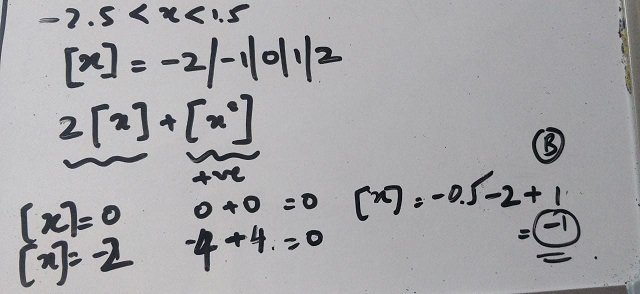 -2.5 < x < 1.5
[x] = -2/-1/0/1/2
2[x] + [x²]
+ve
[x]=0 0+0 =0
[x]=-2 -4+4.=0
Ⓑ
[x] = -0.5 -2+1
= -1